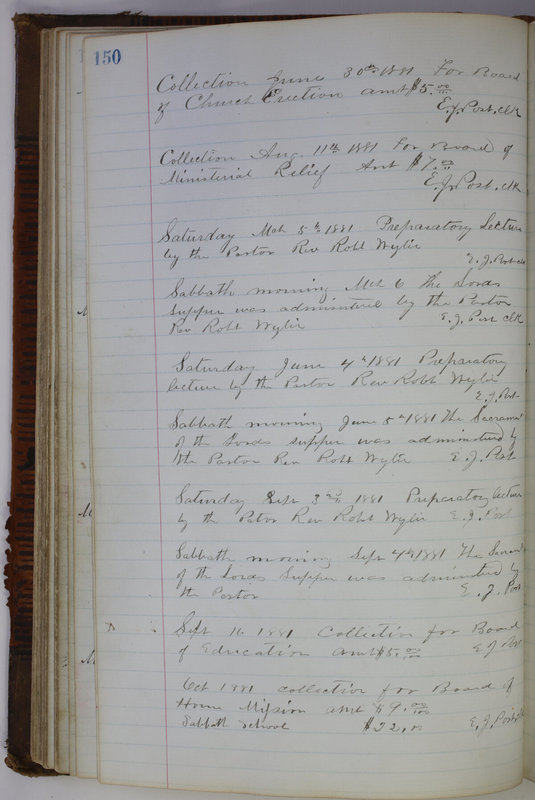 150
Collection June 30th 1881 For Board
of Church Erection amt $5.00
E.J. Post, clk
Collection Aug. 11th 1881 for Board of
Ministerial Relief Amt $7.00
E.J. Post, clk
Saturday Mch 5th 1881 Preparatory Lecture
by the Pastor Rev Robt Wylie
E.J. Post clk
Sabbath morning Mch 6 The Lords
supper was administered by the Pastor
Rev Robt Wylie E.J. Post clk
Saturday June 4th 1881 Preparatory
lecture by the Pastor Rev Robt Wylie
E.J. Post
Sabbath morning June 5th 1881 The Sacrament
of the Lords supper was administerd by
the Pastor Rev Robt Wylie E.J. Post
Saturday Sept 3rd 1881 Preparatory lecture
by the Pator Rev Robt Wylie E.J. Post
Sabbath morning Sept 4th 1881 The Sacrament
of the Lords Supper was administerd by
the Pastor E.J. Post
Sept 16 1881 Collection for Board
of Education amt $5.00 E J Post
Oct 1881 collection for Board of
Home Mission amt $9.00/100
Sabbath school $22.00 E.J. Post clk